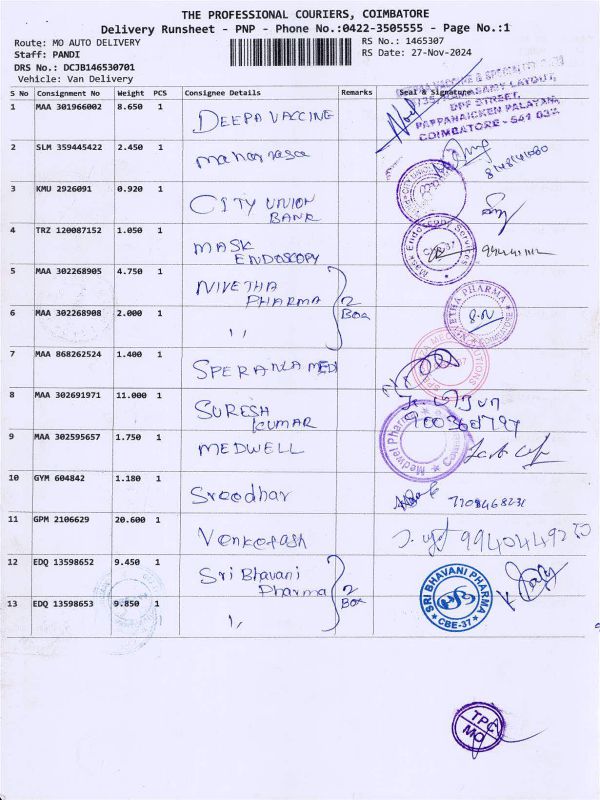 THE PROFESSIONAL COURIERS, COIMBATORE
Delivery Runsheet - PNP - Phone No.:0422-3505555 - Page No.:1
Route: MO AUTO DELIVERY
RS No.: 1465307
Staff: PANDI
RS Date: 27-Nov-2024
DRS No.: DCJB146530701
Vehicle: Van Delivery
S No Consignment No Weight PCS Consignee Details Remarks Seal & Signature
1 MAA 301966002 8.650 1 DEEPA VACCINE
DPF STREET,
PAPPANAICKEN PALAYAM,
COIMBATORE - 641 037.
2 SLM 359445422 2.450 1
3 KMU 2926091 0.920 1 CITY UNION
BANK
4 TRZ 120087152 1.050 1 MASK
ENDOSCOPY
Mask Endoscopy Services
CBE-37
5 MAA 302268905 4.750 1 NIVETHA
PHARMA 2
Box
NIVETHA PHARMA
COIMBATORE
6 MAA 302268908 2.000 1 ''
7 MAA 868262524 1.400 1 SPERANZA MED
8 MAA 302691971 11.000 1 SURESH
KUMAR
9 MAA 302595657 1.750 1 MEDWELL
Medwel Pharma
10 GYM 604842 1.180 1 Sreedhar
11 GPM 2106629 20.600 1 Venkatesh
12 EDQ 13598652 9.450 1 Sri Bhavani
Pharma 2
Box
SRI BHAVANI PHARMA
CBE-37
13 EDQ 13598653 9.850 1 ''
TPC
MO